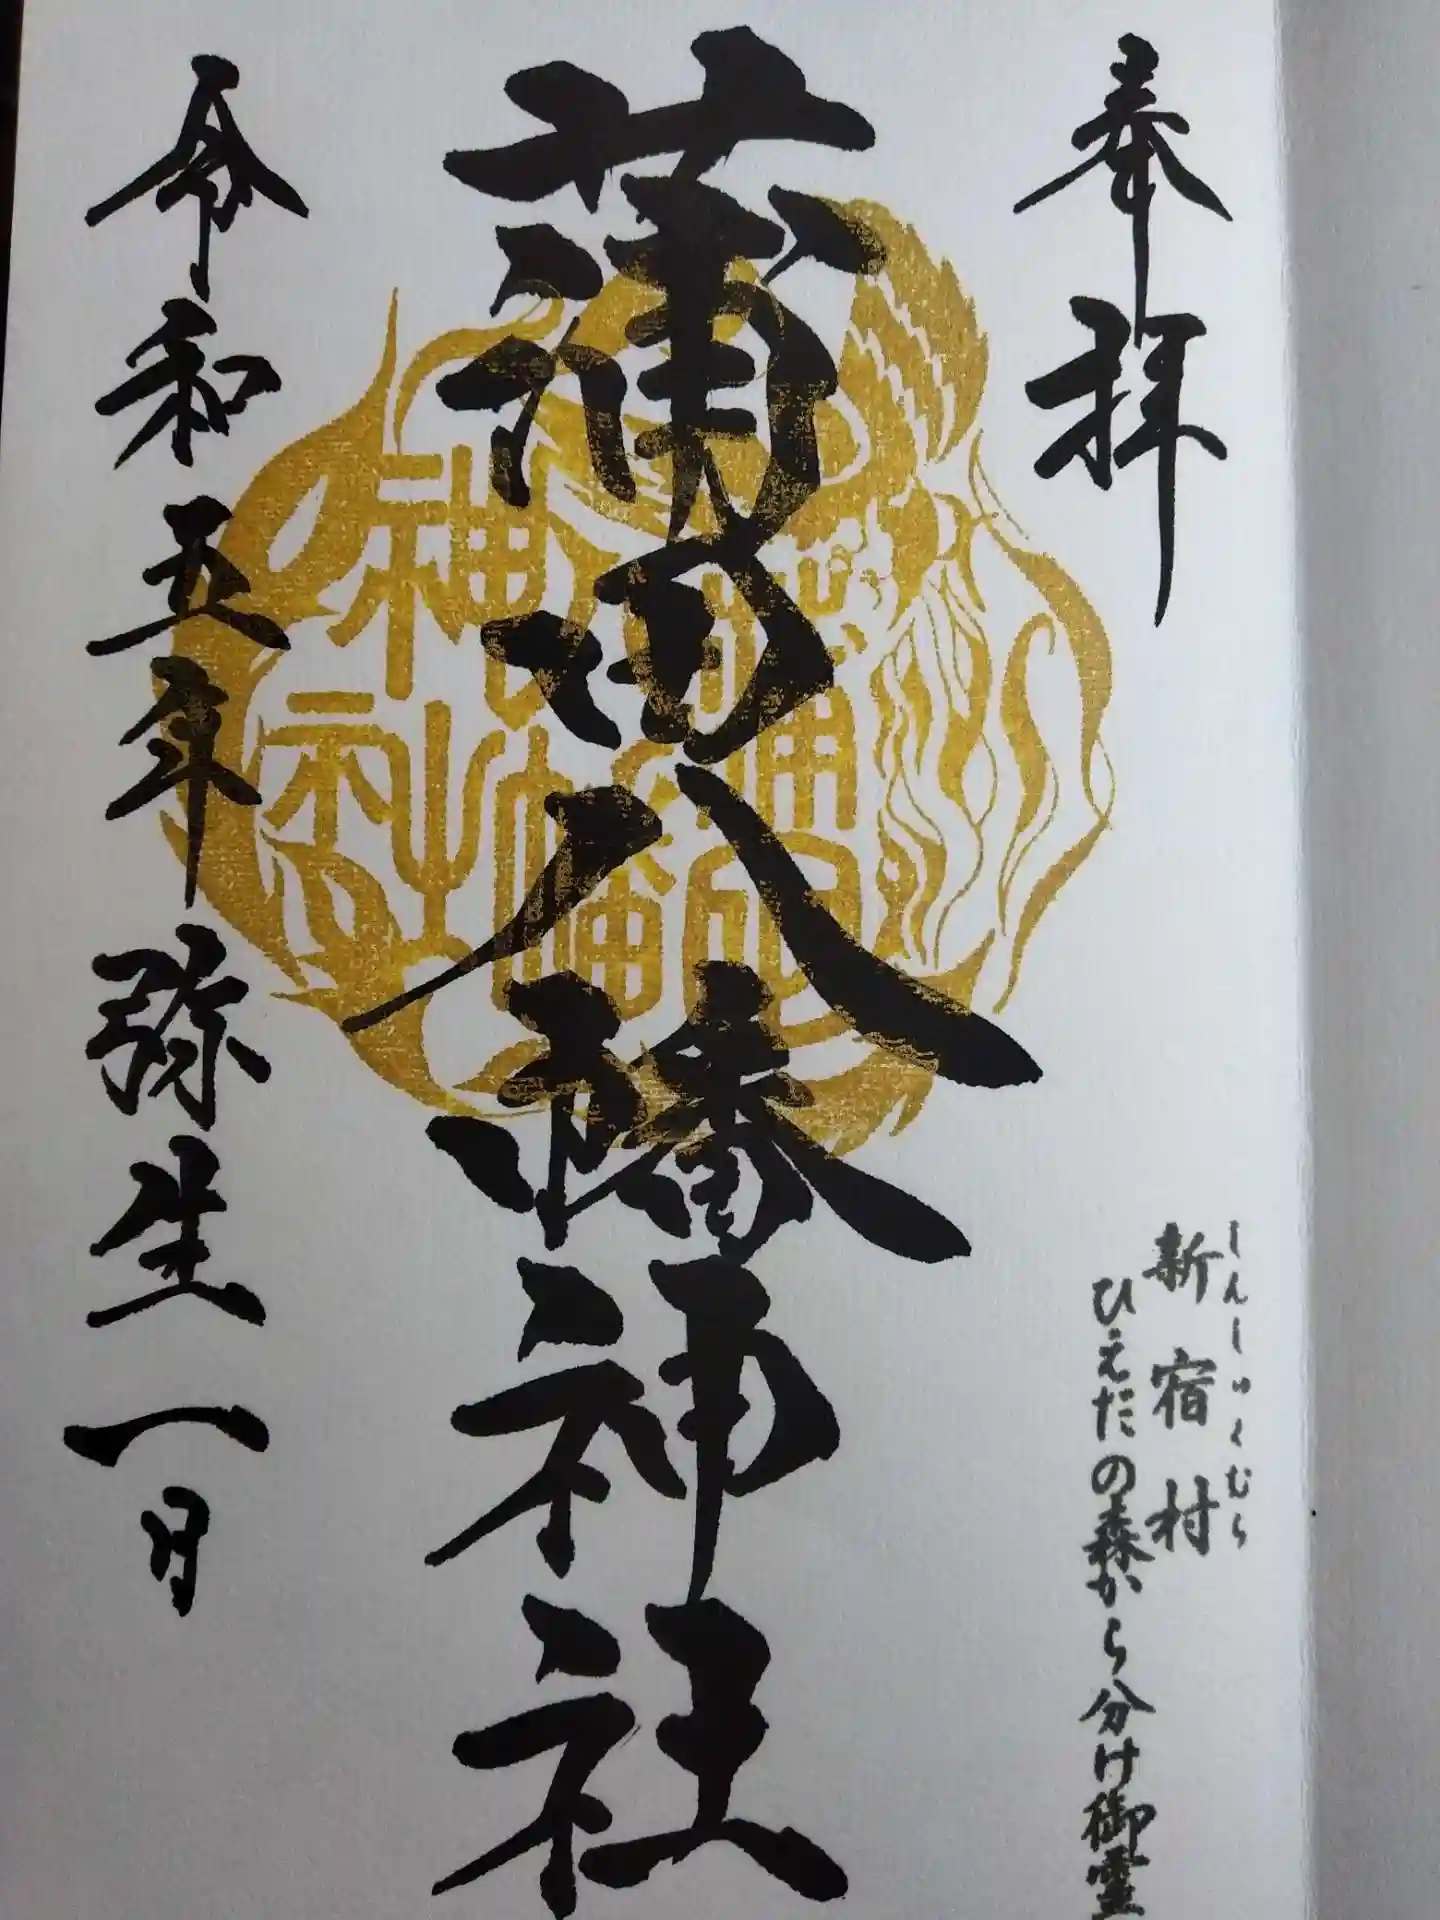 奉拝
しんしゅくむら
新宿村
ひえだの森から分け御霊
蒲田八幡神社
蒲田八幡神社
令和五年弥生一日